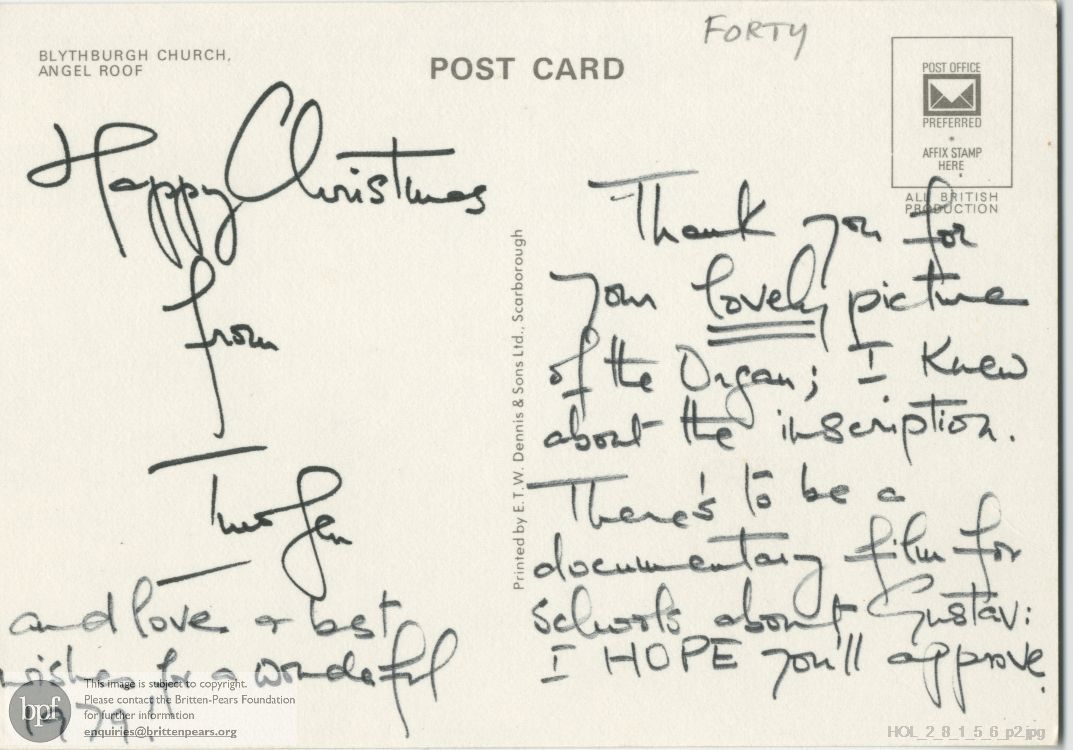 FORTY
BLYTHBURGH CHURCH,
ANGEL ROOF
POST CARD
POST OFFICE
PREFERRED
AFFIX STAMP
HERE
ALL BRITISH
PRODUCTION
Happy Christmas
from
Imogen
and love & best
wishes for a wonderful
1979!
Printed by E.T.W. Dennis & Sons Ltd., Scarborough
Thank you for
your lovely picture
of the Organ; I knew
about the inscription.
There's to be a
documentary film for
schools about Gustav:
I HOPE you'll approve.
bpf
This image is subject to copyright.
Please contact the Britten-Pears Foundation
for further information
enquiries@brittenpears.org
HOL_2_8_1_5_6_p2.jpg